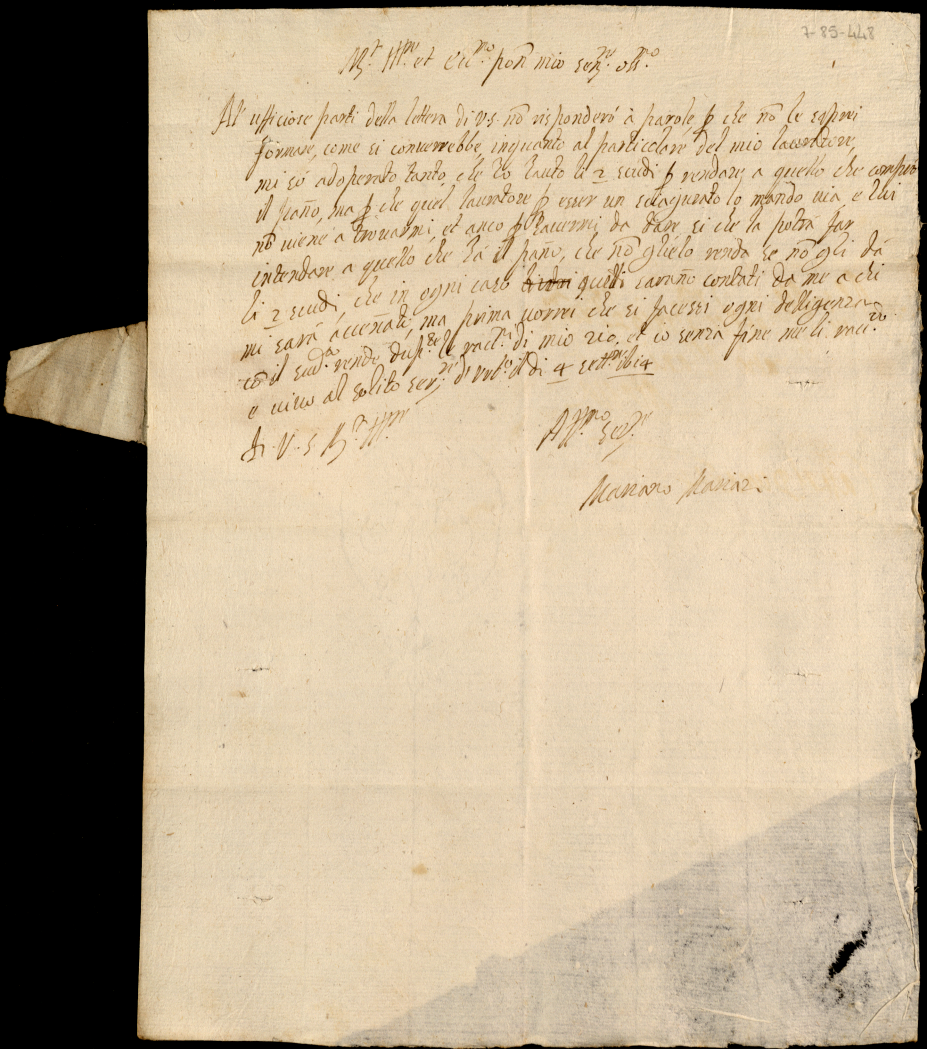 7-85-448
M.to Ill.re et Ecc.mo pon mio ser.re oss.mo
Al ufficiose parti della lettera di V.S. nõ risponderó à parole, p che nõ le saprei
formare, come si converrebbe, inquanto al particolare del mio lavoratore,
mi só adoperato tanto, che hò hauto li 2 scudi p rendare a quello che comprò
il pãno, ma p che quel lavoratore p esser un sciagurato lo mando via, e lui
nõ viene a trovarmi, et anco p havermi da dare, si che la potrà far
intendare a quello che hà il pãno, che nõ glielo renda se nõ gli dà
li 2 scudi, che in ogni caso quelli sarãno contati da me a chi
mi sarà accẽnati, ma prima vorrei che si facessi ogni delligenza
cõ il rendo le racc.ni di mio zio, et io senza fine me li racc.do
e vivo al solito ser.re di il dì 4 sett.re 1614
Di V. S. M.to Ill.re
Aff.mo ser.re
Mariano Mariani